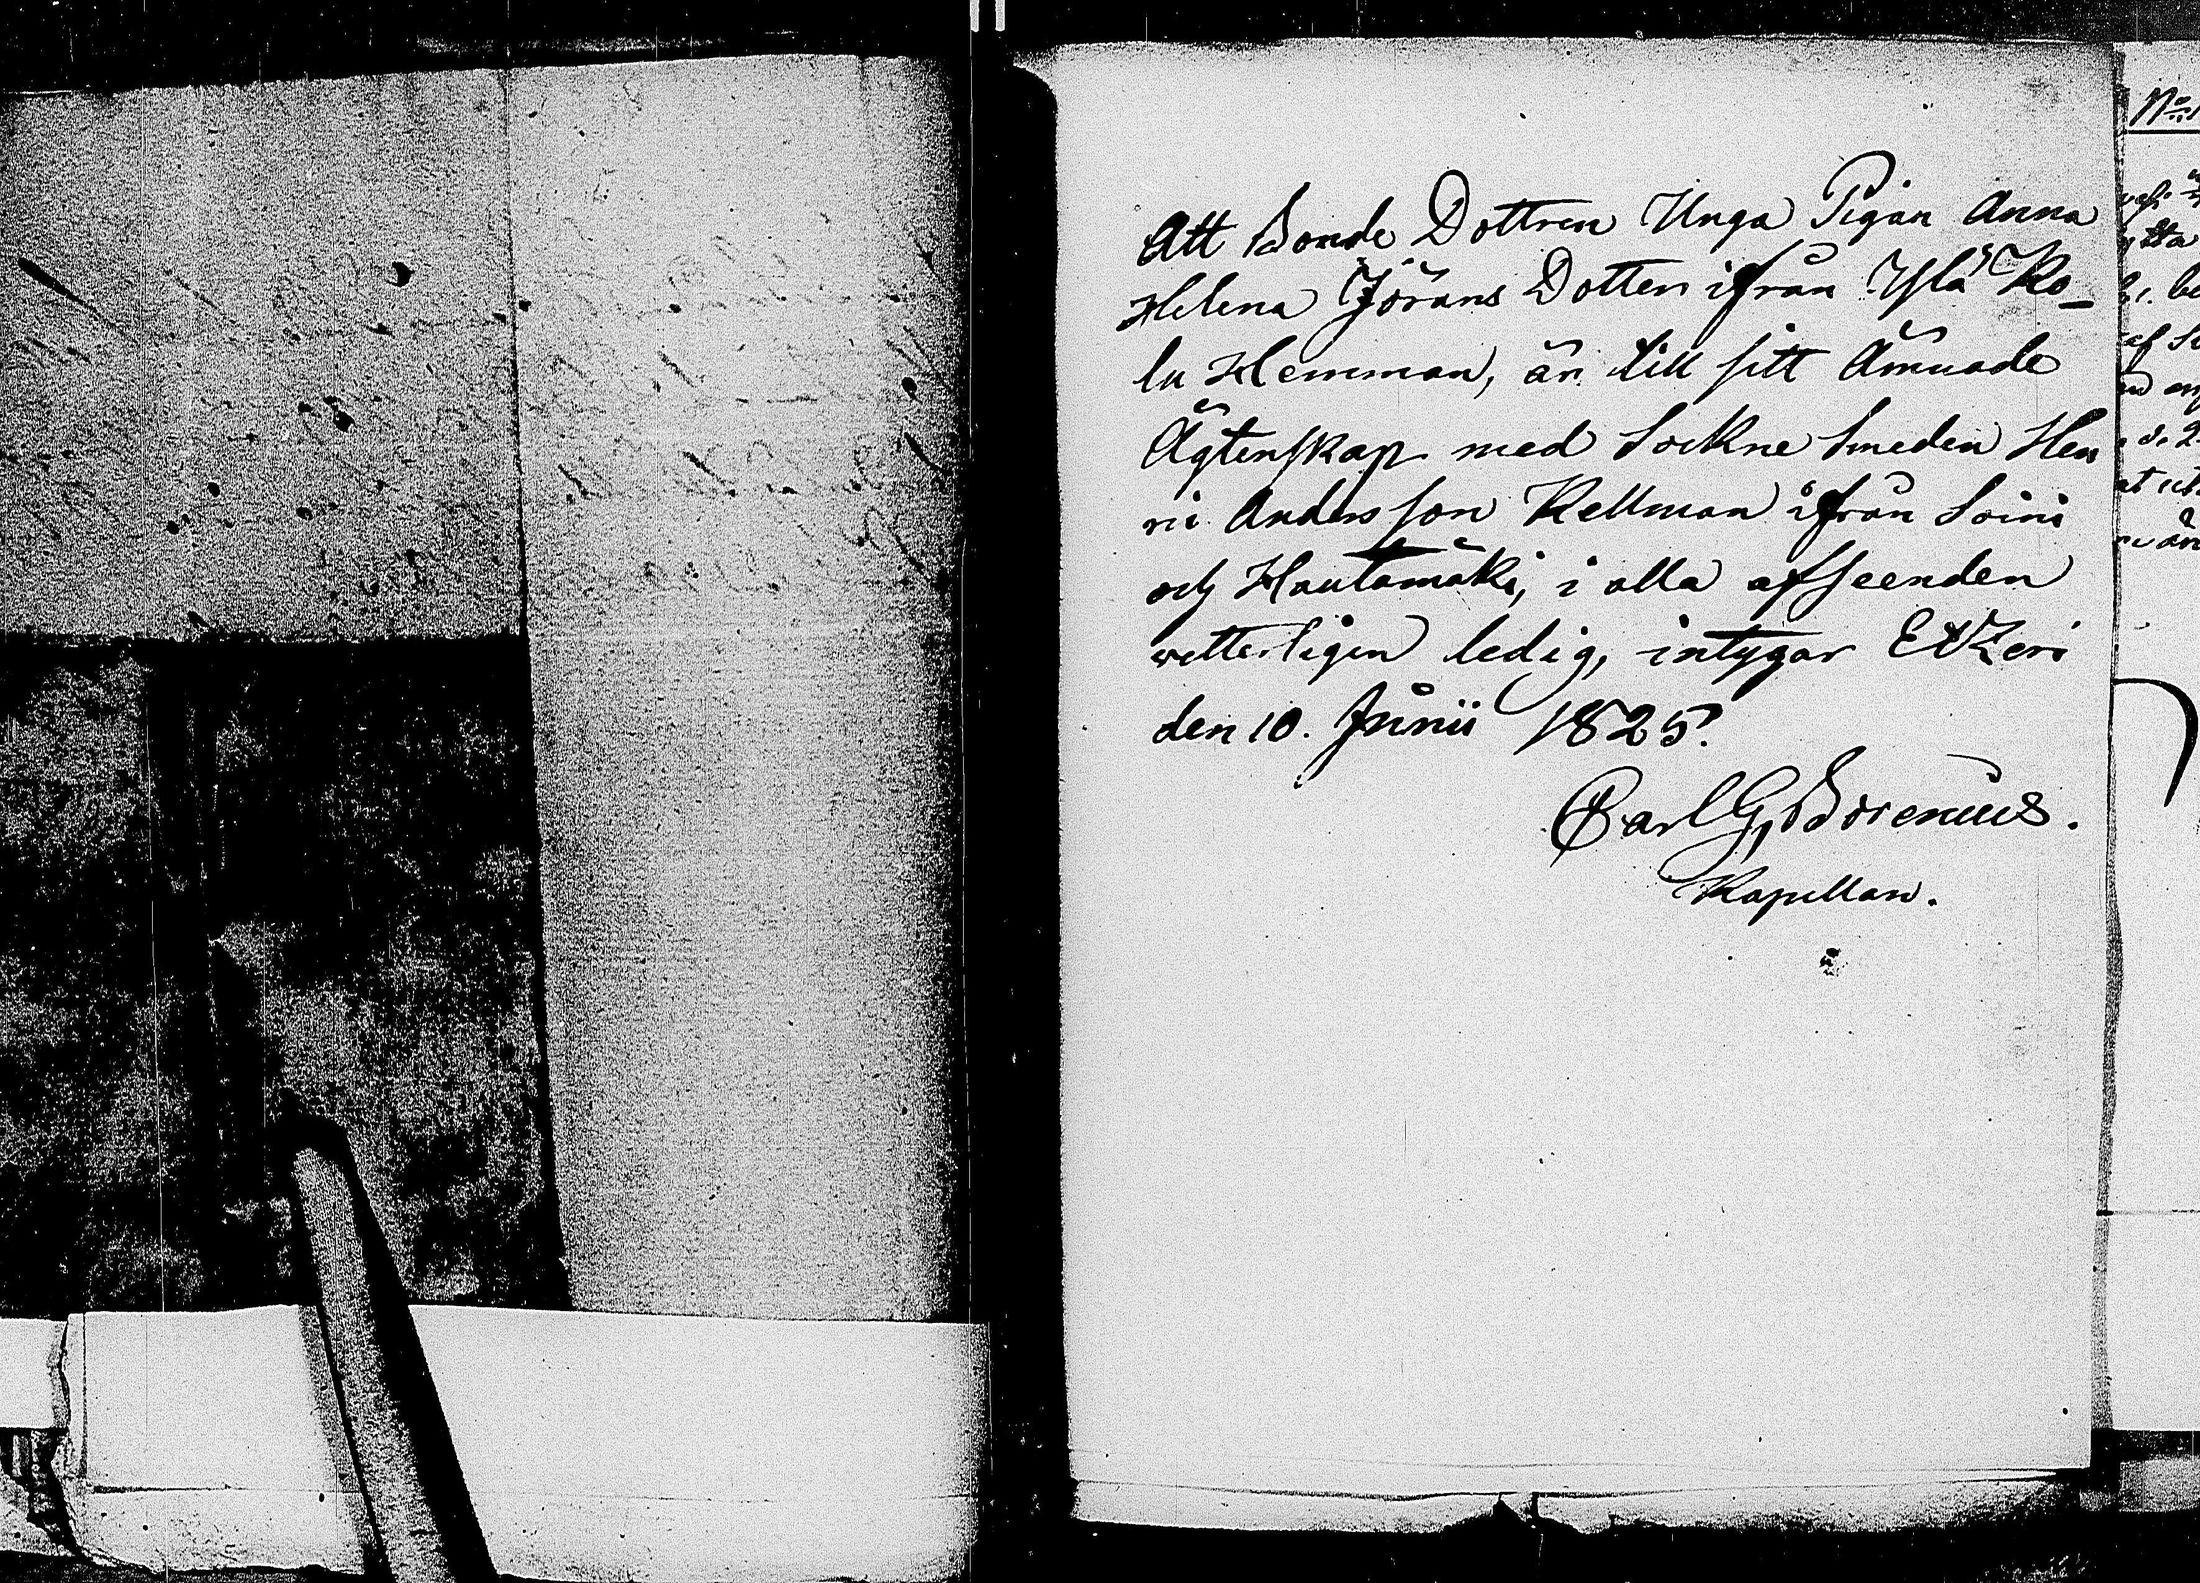 Att Bonde Dottren Unga Pigan Anna
Helena Jörans Dotter ifrån Ylä Ko_
la Hemman, är till sitt ämnade
Ägtenskap med Sockne Smeden Hen
ric Andersson Kellman ifrån Soini
och Hautamäki, i alla afseenden
vetterligen ledig, intygar Etzeri
den 10. Junii 1825.
Carl G, Borenius.
Kapellan.
No